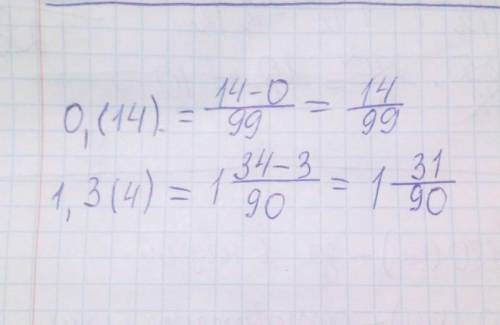 0,(14) = \frac{14-0}{99} = \frac{14}{99}
1,3(4) = 1\frac{34-3}{90} = 1\frac{31}{90}